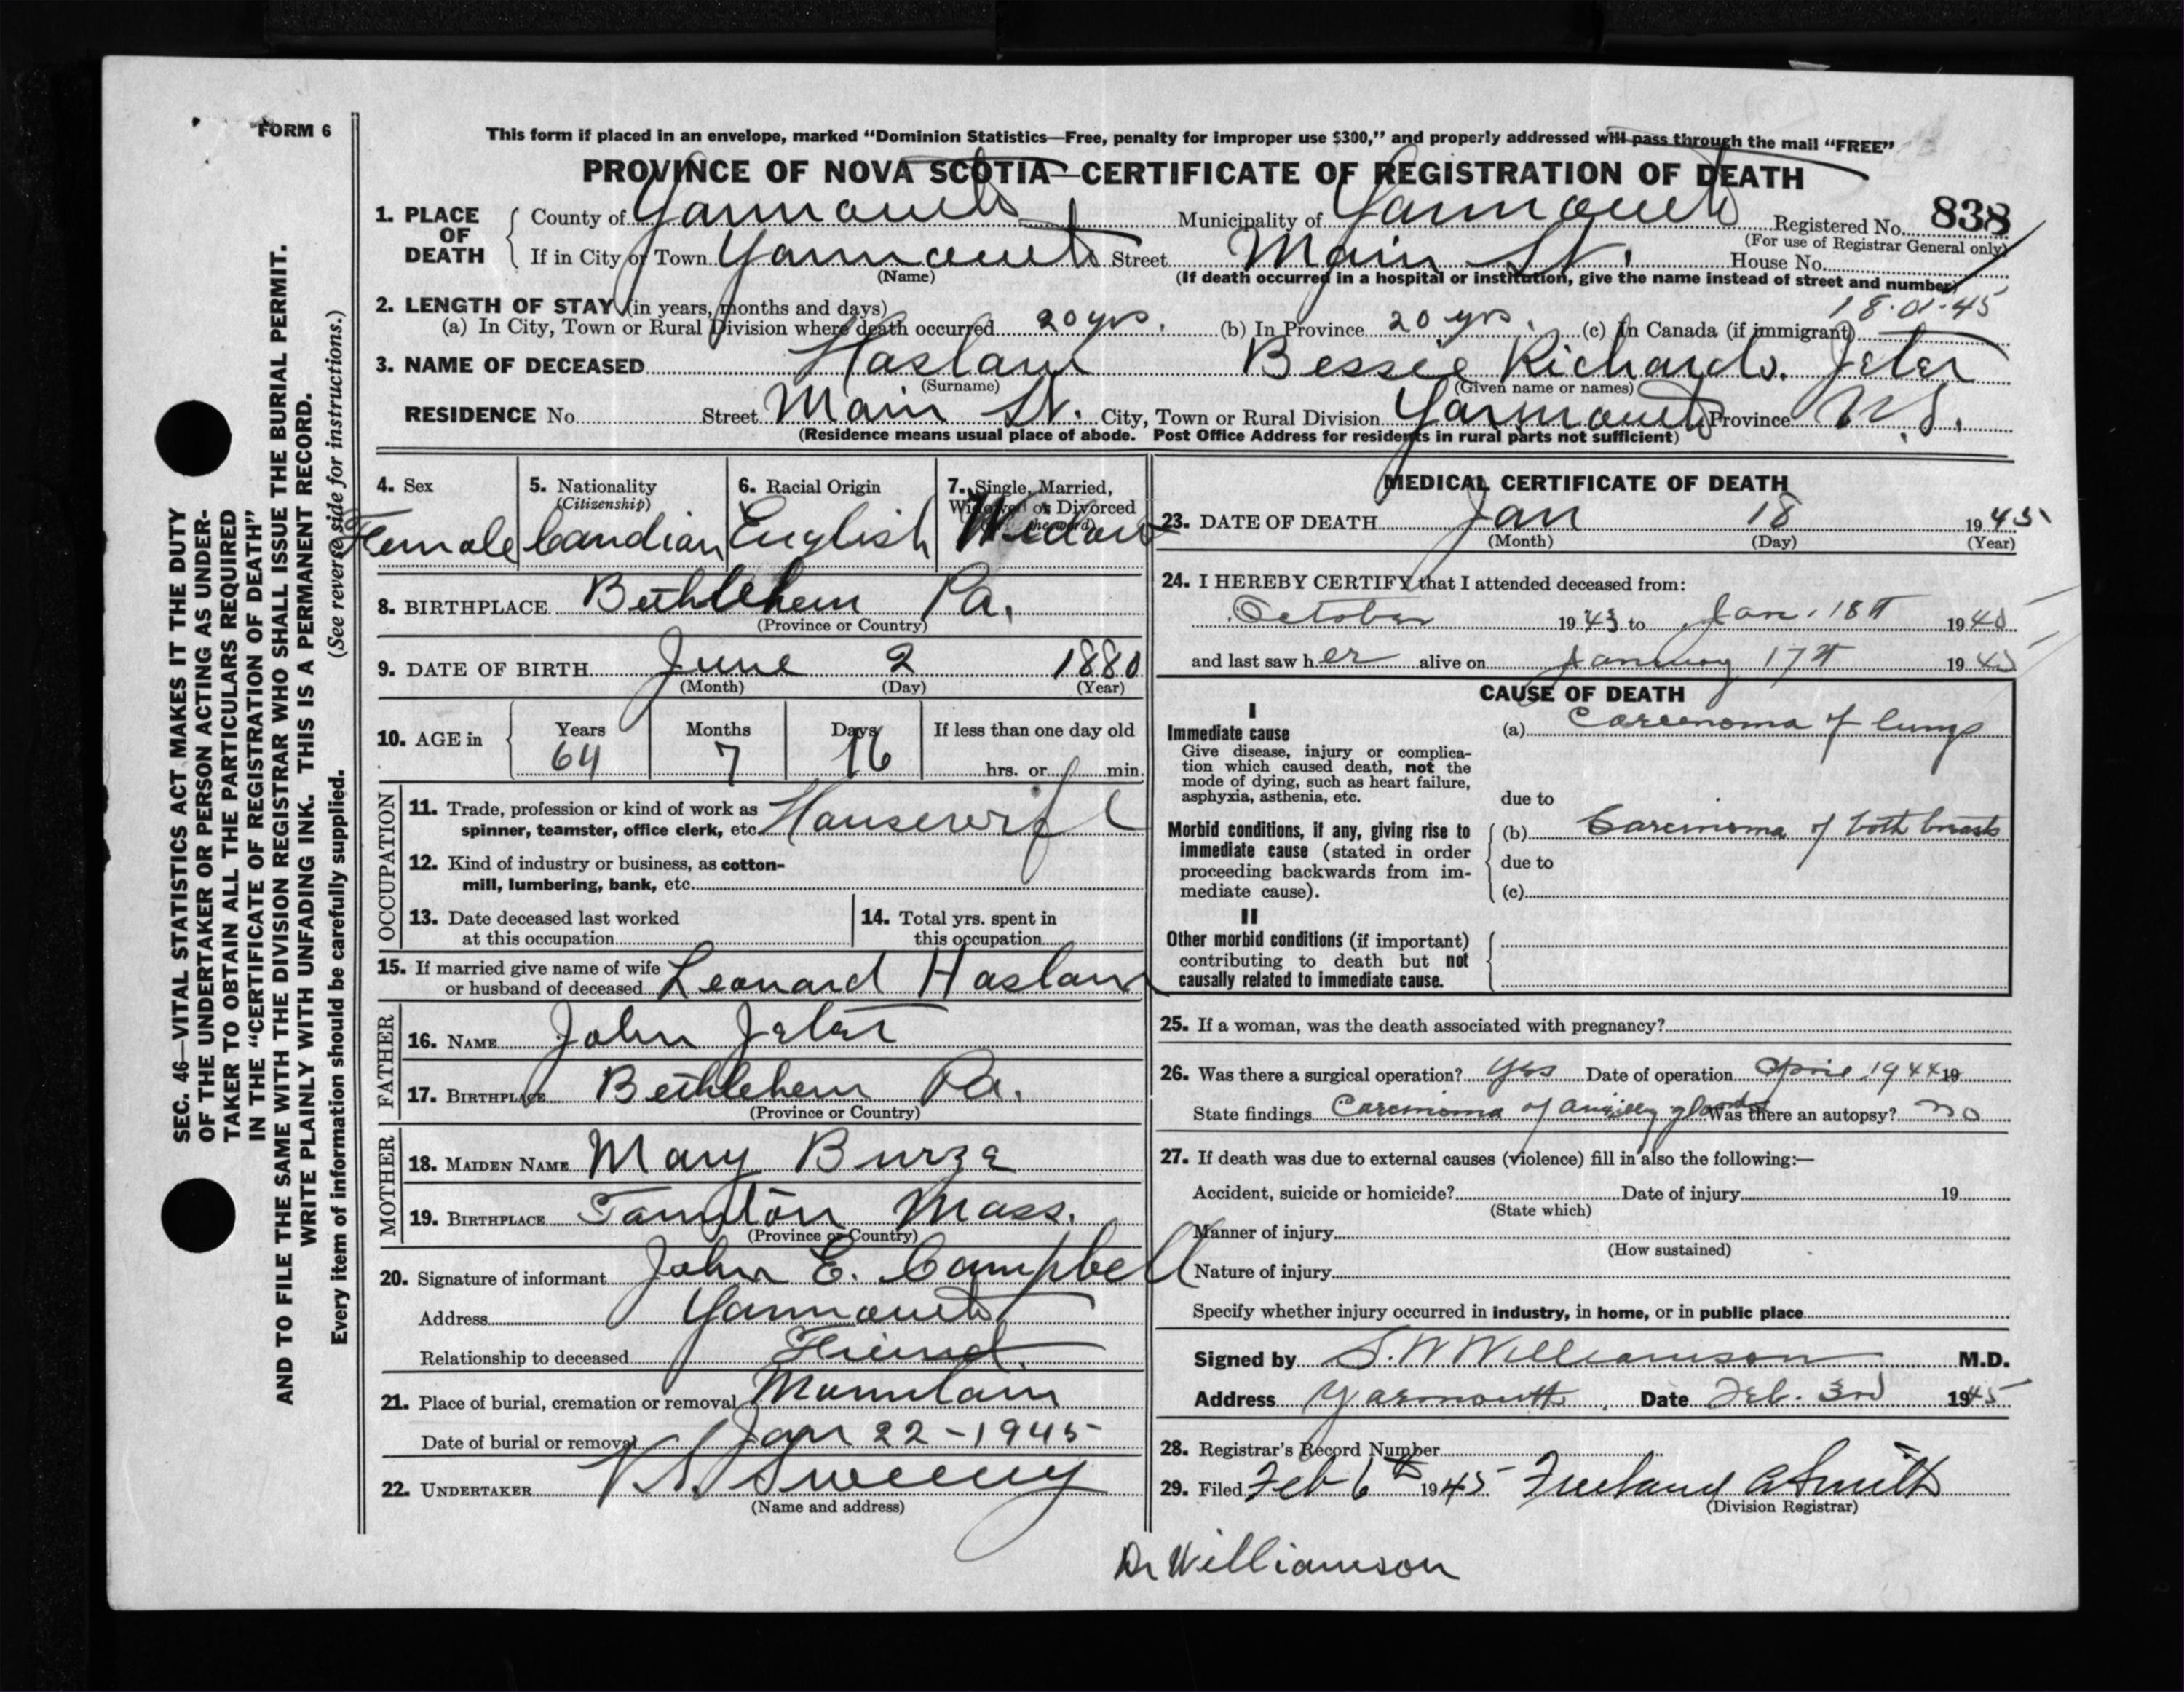 FORM 6
This form if placed in an envelope, marked “Dominion Statistics—Free, penalty for improper use $300,” and properly addressed will pass through the mail “FREE”
PROVINCE OF NOVA SCOTIA—CERTIFICATE OF REGISTRATION OF DEATH
1. PLACE OF DEATH
County of Yarmouth Municipality of Yarmouth Registered No. 838
(For use of Registrar General only)
If in City or Town Yarmouth Street Main St. House No.
(Name) (If death occurred in a hospital or institution, give the name instead of street and number)
18·01·45
2. LENGTH OF STAY (in years, months and days)
(a) In City, Town or Rural Division where death occurred 20 yrs. (b) In Province 20 yrs. (c) In Canada (if immigrant)
3. NAME OF DECEASED Haslam Bessie Richards. Jeter
(Surname) (Given name or names)
RESIDENCE No. Street Main St. City, Town or Rural Division Yarmouth Province N.S.
(Residence means usual place of abode. Post Office Address for residents in rural parts not sufficient)
4. Sex Female
5. Nationality (Citizenship) Candian
6. Racial Origin English
7. Single, Married, Widowed or Divorced Widow
8. BIRTHPLACE Bethlehem Pa.
(Province or Country)
9. DATE OF BIRTH June 2 1880
(Month) (Day) (Year)
10. AGE in Years 64 Months 7 Days 16 If less than one day old hrs. or min.
OCCUPATION
11. Trade, profession or kind of work as spinner, teamster, office clerk, etc. Housewife
12. Kind of industry or business, as cotton-mill, lumbering, bank, etc.
13. Date deceased last worked at this occupation
14. Total yrs. spent in this occupation
15. If married give name of wife or husband of deceased Leonard Haslam
FATHER
16. NAME John Jeter
17. BIRTHPLACE Bethlehem Pa.
(Province or Country)
MOTHER
18. MAIDEN NAME Mary
19. BIRTHPLACE Taunton Mass.
(Province or Country)
20. Signature of informant John E. Campbell
Address Yarmouth
Relationship to deceased Friend.
21. Place of burial, cremation or removal Mountain
Date of burial or removal Jan 22-1945
22. UNDERTAKER V.S. Sweeny
(Name and address)
MEDICAL CERTIFICATE OF DEATH
23. DATE OF DEATH Jan 18 1945
(Month) (Day) (Year)
24. I HEREBY CERTIFY that I attended deceased from:
October 1943 to Jan. 18th 1945
and last saw her alive on January 17th 1945
CAUSE OF DEATH
I
Immediate cause
Give disease, injury or complica-
tion which caused death, not the
mode of dying, such as heart failure,
asphyxia, asthenia, etc.
(a) Carcenoma of lungs
due to
Morbid conditions, if any, giving rise to
immediate cause (stated in order
proceeding backwards from im-
mediate cause).
(b) Carcinoma of both breasts
due to
(c)
II
Other morbid conditions (if important)
contributing to death but not
causally related to immediate cause.
25. If a woman, was the death associated with pregnancy?
26. Was there a surgical operation? Yes Date of operation April 1944 19
State findings Carcinoma of glands Was there an autopsy? no
27. If death was due to external causes (violence) fill in also the following:—
Accident, suicide or homicide? Date of injury 19
(State which)
Manner of injury
(How sustained)
Nature of injury
Specify whether injury occurred in industry, in home, or in public place
Signed by S.W Williamson M.D.
Address Yarmouth. Date Feb. 3rd 1945
28. Registrar's Record Number
29. Filed Feb 6th 1945 Freeland A Smith
(Division Registrar)
Dr Williamson
SEC. 46—VITAL STATISTICS ACT MAKES IT THE DUTY
OF THE UNDERTAKER OR PERSON ACTING AS UNDER-
TAKER TO OBTAIN ALL THE PARTICULARS REQUIRED
IN THE “CERTIFICATE OF REGISTRATION OF DEATH”
AND TO FILE THE SAME WITH THE DIVISION REGISTRAR WHO SHALL ISSUE THE BURIAL PERMIT.
WRITE PLAINLY WITH UNFADING INK. THIS IS A PERMANENT RECORD.
Every item of information should be carefully supplied. (See reverse side for instructions.)